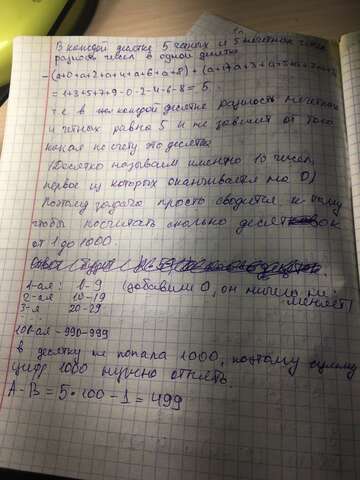 В каждой десятке 5 чётных и 5 нечётных чисел
разность чисел в одной десятке
-(a+0+a+2+a+4+a+6+a+8)+(a+1+a+3+a+5+a+7+a+9)
=1+3+5+7+9-0-2-4-6-8=5
т.е в каждой десятке разность нечётных
и чётных равна 5 и не зависит от того
какая по счёту это десятка
(Десяткой называем именно 10 чисел,
первое из которых оканчивается на 0)
Поэтому задача просто сводится к тому
чтобы посчитать сколько десяток
от 1 до 1000.
1-ая: 0-9 (добавили 0, он ничего не
2-ая 10-19 меняет)
3-я 20-29
100-ая-990-999
в десятку не попала 1000, поэтому сумму
цифр 1000 нужно отнять.
A-B=5·100-1=499